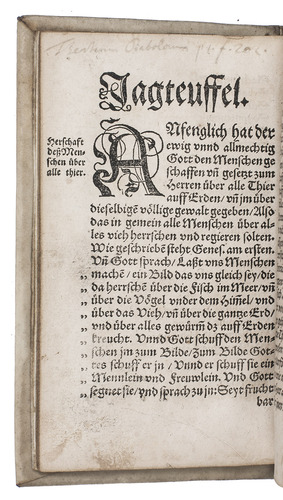 Jagteuffel.
Herschaft
deß Men-
schen über
alle thier.
ANfenglich hat der
ewig vnnd allmechtig
Gott den Menschen ge
schaffen vñ gesetzt zum
Herren über alle Thier
auff Erden / vñ jm über
dieselbigẽ völlige gewalt gegeben / Also
das in gemein alle Menschen über al-
les vieh herrschen vnd regieren solten.
Wie geschriebẽ steht Genes. am ersten.
Vñ Gott sprach / Laßt vns Menschen
„ machẽ / ein Bild das vns gleich sey / die
„ da herrschẽ über die Fisch im Meer / vñ
„ über die Vögel vnder dem Him̃el / vnd
„ über das Vieh / vñ über die gantze Erd /
„ vnd über alles gewürm̃ dz auff Erden
„ kreucht. Vnnd Gott schuff den Men-
„ schen jm zum Bilde / Zum Bilde Got-
„ tes schuff er jn / Vnnd er schuff sie ein
„ Mennlein vnd Frewlein. Vnd Gott
„ segnet sie / vnd sprach zu jn: Seyt frucht
bar